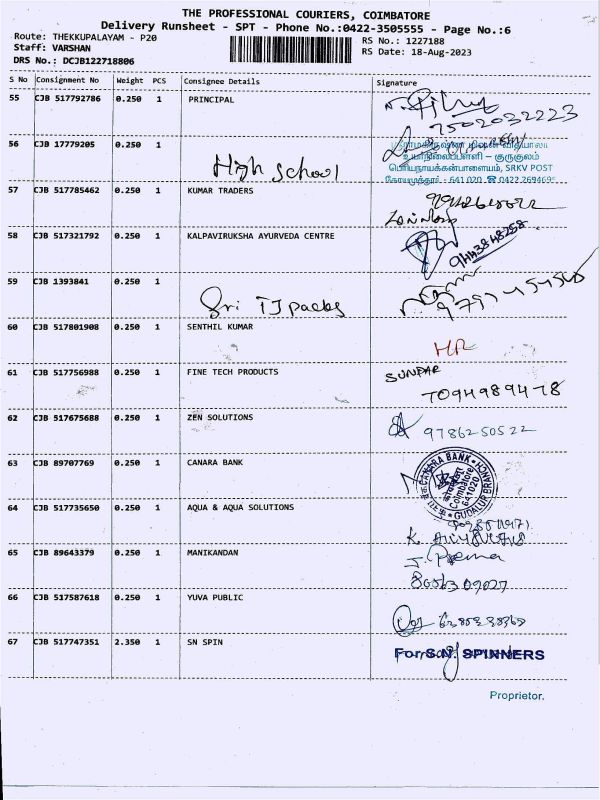 THE PROFESSIONAL COURIERS, COIMBATORE
Delivery Runsheet - SPT - Phone No.:0422-3505555 - Page No.:6
Route: THEKKUPALAYAM - P20 RS No.: 1227188
Staff: VARSHAN RS Date: 18-Aug-2023
DRS No.: DCJB122718806
S No Consignment No Weight PCS Consignee Details Signature
55 CJB 517792786 0.250 1 PRINCIPAL
7502032223
56 CJB 17779205 0.250 1
High School
உயர்நிலைப்பள்ளி – குருகுலம்
பெரியநாயக்கன்பாளையம், SRKV POST
கோயமுத்தூர் - 641 020. ☎ 0422 269469
57 CJB 517785462 0.250 1 KUMAR TRADERS
58 CJB 517321792 0.250 1 KALPAVIRUKSHA AYURVEDA CENTRE
9443848258
59 CJB 1393841 0.250 1
Sri TJ packs
60 CJB 517801908 0.250 1 SENTHIL KUMAR
HR
61 CJB 517756988 0.250 1 FINE TECH PRODUCTS SUNDAR
7094989478
62 CJB 517675688 0.250 1 ZEN SOLUTIONS 9786250522
63 CJB 89707769 0.250 1 CANARA BANK
CANARA BANK
Coimbatore
641020
GUDALUR BRANCH
64 CJB 517735650 0.250 1 AQUA & AQUA SOLUTIONS
65 CJB 89643379 0.250 1 MANIKANDAN J. Prema
66 CJB 517587618 0.250 1 YUVA PUBLIC
67 CJB 517747351 2.350 1 SN SPIN For S.N. SPINNERS
Proprietor.